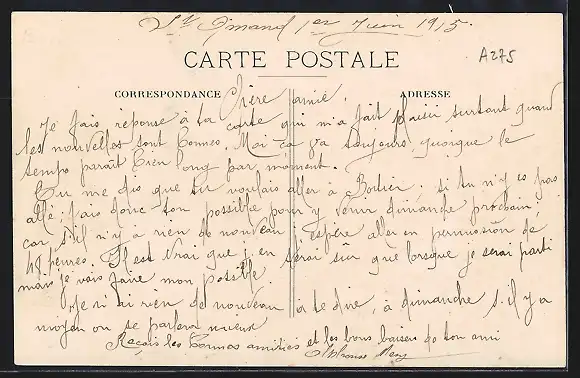 St Amand 1er Juin 1915.
CARTE POSTALE
A275
CORRESPONDANCE
ADRESSE
Chère amie,
Je fais réponse à ta carte qui m'a fait plaisir surtout quand
les nouvelles sont bonnes. Moi ça va toujours quoique le
temps parait bien long par moment.
Tu me dis que tu voulais aller à si tu n'y es pas
allé, fais donc ton possible pour y venir dimanche prochain,
car s'il n'y a rien de nouveau j'espère aller en permission de
48 heures. Il est vrai que j'en serai sûr que lorsque je serai parti
mais je vais faire mon possible.
Je n'ai rien de nouveau à te dire, à dimanche s'il y a
moyen on se parlera mieux
Reçois les bonnes amitiés et les bons baisers de ton ami
Alphonse